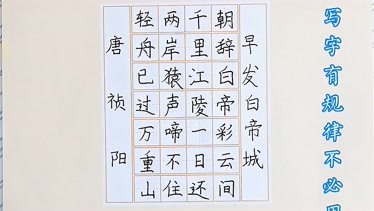 写字有规律不必
早发白帝城
朝辞白帝彩云间
千里江陵一日还
两岸猿声啼不住
轻舟已过万重山
唐祯阳